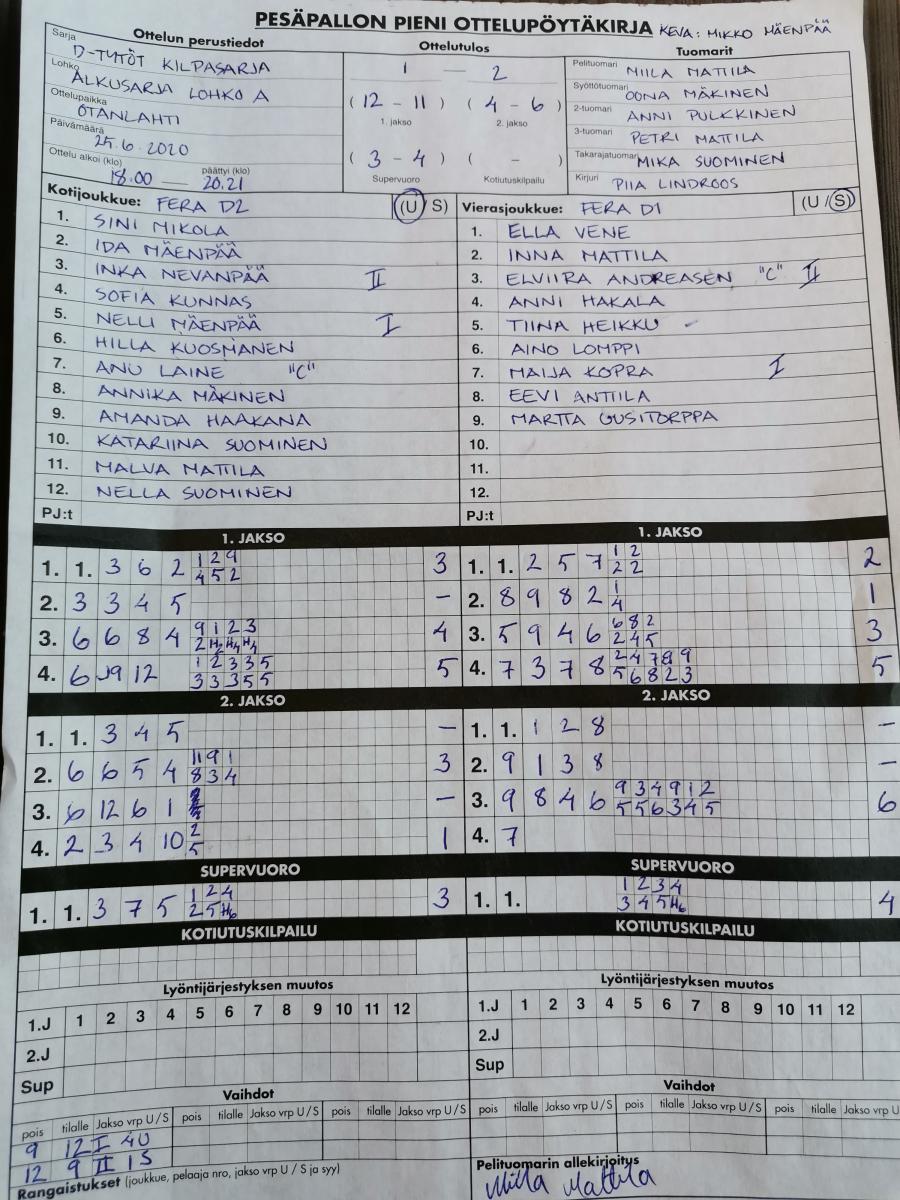 PESÄPALLON PIENI OTTELUPÖYTÄKIRJA KEVA: MIKKO MÄENPÄÄ
Ottelun perustiedot
Sarja D-TYTÖT KILPASARJA
Lohko ALKUSARJA LOHKO A
Ottelupaikka OTANLAHTI
Päivämäärä 25.6.2020
Ottelu alkoi (klo) päättyi (klo)
18.00 — 20.21
Ottelutulos
1 — 2
( 12 - 11 ) ( 4 - 6 )
1. jakso 2. jakso
( 3 - 4 ) ( - )
Supervuoro Kotiutuskilpailu
Tuomarit
Pelituomari MIILA MATTILA
Syöttötuomari OONA MÄKINEN
2-tuomari ANNI PULKKINEN
3-tuomari PETRI MATTILA
Takarajatuomari MIKA SUOMINEN
Kirjuri PIIA LINDROOS
Kotijoukkue: FERA D2 (U / S)
1. SINI MIKOLA
2. IDA MÄENPÄÄ
3. INKA NEVANPÄÄ II
4. SOFIA KUNNAS
5. NELLI MÄENPÄÄ I
6. HILLA KUOSMANEN
7. ANU LAINE "C"
8. ANNIKA MÄKINEN
9. AMANDA HAAKANA
10. KATARIINA SUOMINEN
11. MALVA MATTILA
12. NELLA SUOMINEN
PJ:t
Vierasjoukkue: FERA D1 (U / S)
1. ELLA VENE
2. INNA MATTILA
3. ELVIIRA ANDREASEN "C" II
4. ANNI HAKALA
5. TIINA HEIKKU
6. AINO LOMPPI
7. MAIJA KOPRA I
8. EEVI ANTTILA
9. MARTTA UUSITORPPA
10.
11.
12.
PJ:t
1. JAKSO
1. 1. 3 6 2 1 2 9 3
4 5 2
2. 3 3 4 5 -
3. 6 6 8 4 9 1 2 3 4
2 H2 H4 H4
4. 6 9 12 1 2 3 3 5 5
3 3 3 5 5
1. JAKSO
1. 1. 2 5 7 1 2 2
2 2
2. 8 9 8 2 1 1
4
3. 5 9 4 6 6 8 2 3
2 4 5
4. 7 3 7 8 2 4 7 8 9 5
5 6 8 2 3
2. JAKSO
1. 1. 3 4 5 -
2. 6 6 5 4 11 9 1 3
8 3 4
3. 6 12 6 1 -
4. 2 3 4 10 2 1
5
2. JAKSO
1. 1. 1 2 8 -
2. 9 1 3 8 -
3. 9 8 4 6 9 3 4 9 1 2 6
5 5 6 3 4 5
4. 7
SUPERVUORO
1. 1. 3 7 5 1 2 4 3
2 5 H6
SUPERVUORO
1. 1. 1 2 3 4 4
3 4 5 H6
KOTIUTUSKILPAILU
Lyöntijärjestyksen muutos
1.J 1 2 3 4 5 6 7 8 9 10 11 12
2.J
Sup
KOTIUTUSKILPAILU
Lyöntijärjestyksen muutos
1.J 1 2 3 4 5 6 7 8 9 10 11 12
2.J
Sup
Vaihdot
pois tilalle Jakso vrp U / S pois tilalle Jakso vrp U / S pois tilalle Jakso vrp U / S
9 12 I 4U
12 9 II 1S
Vaihdot
pois tilalle Jakso vrp U / S pois tilalle Jakso vrp U / S pois tilalle Jakso vrp U
Rangaistukset (joukkue, pelaaja nro, jakso vrp U / S ja syy)
Pelituomarin allekirjoitys
Miila Mattila